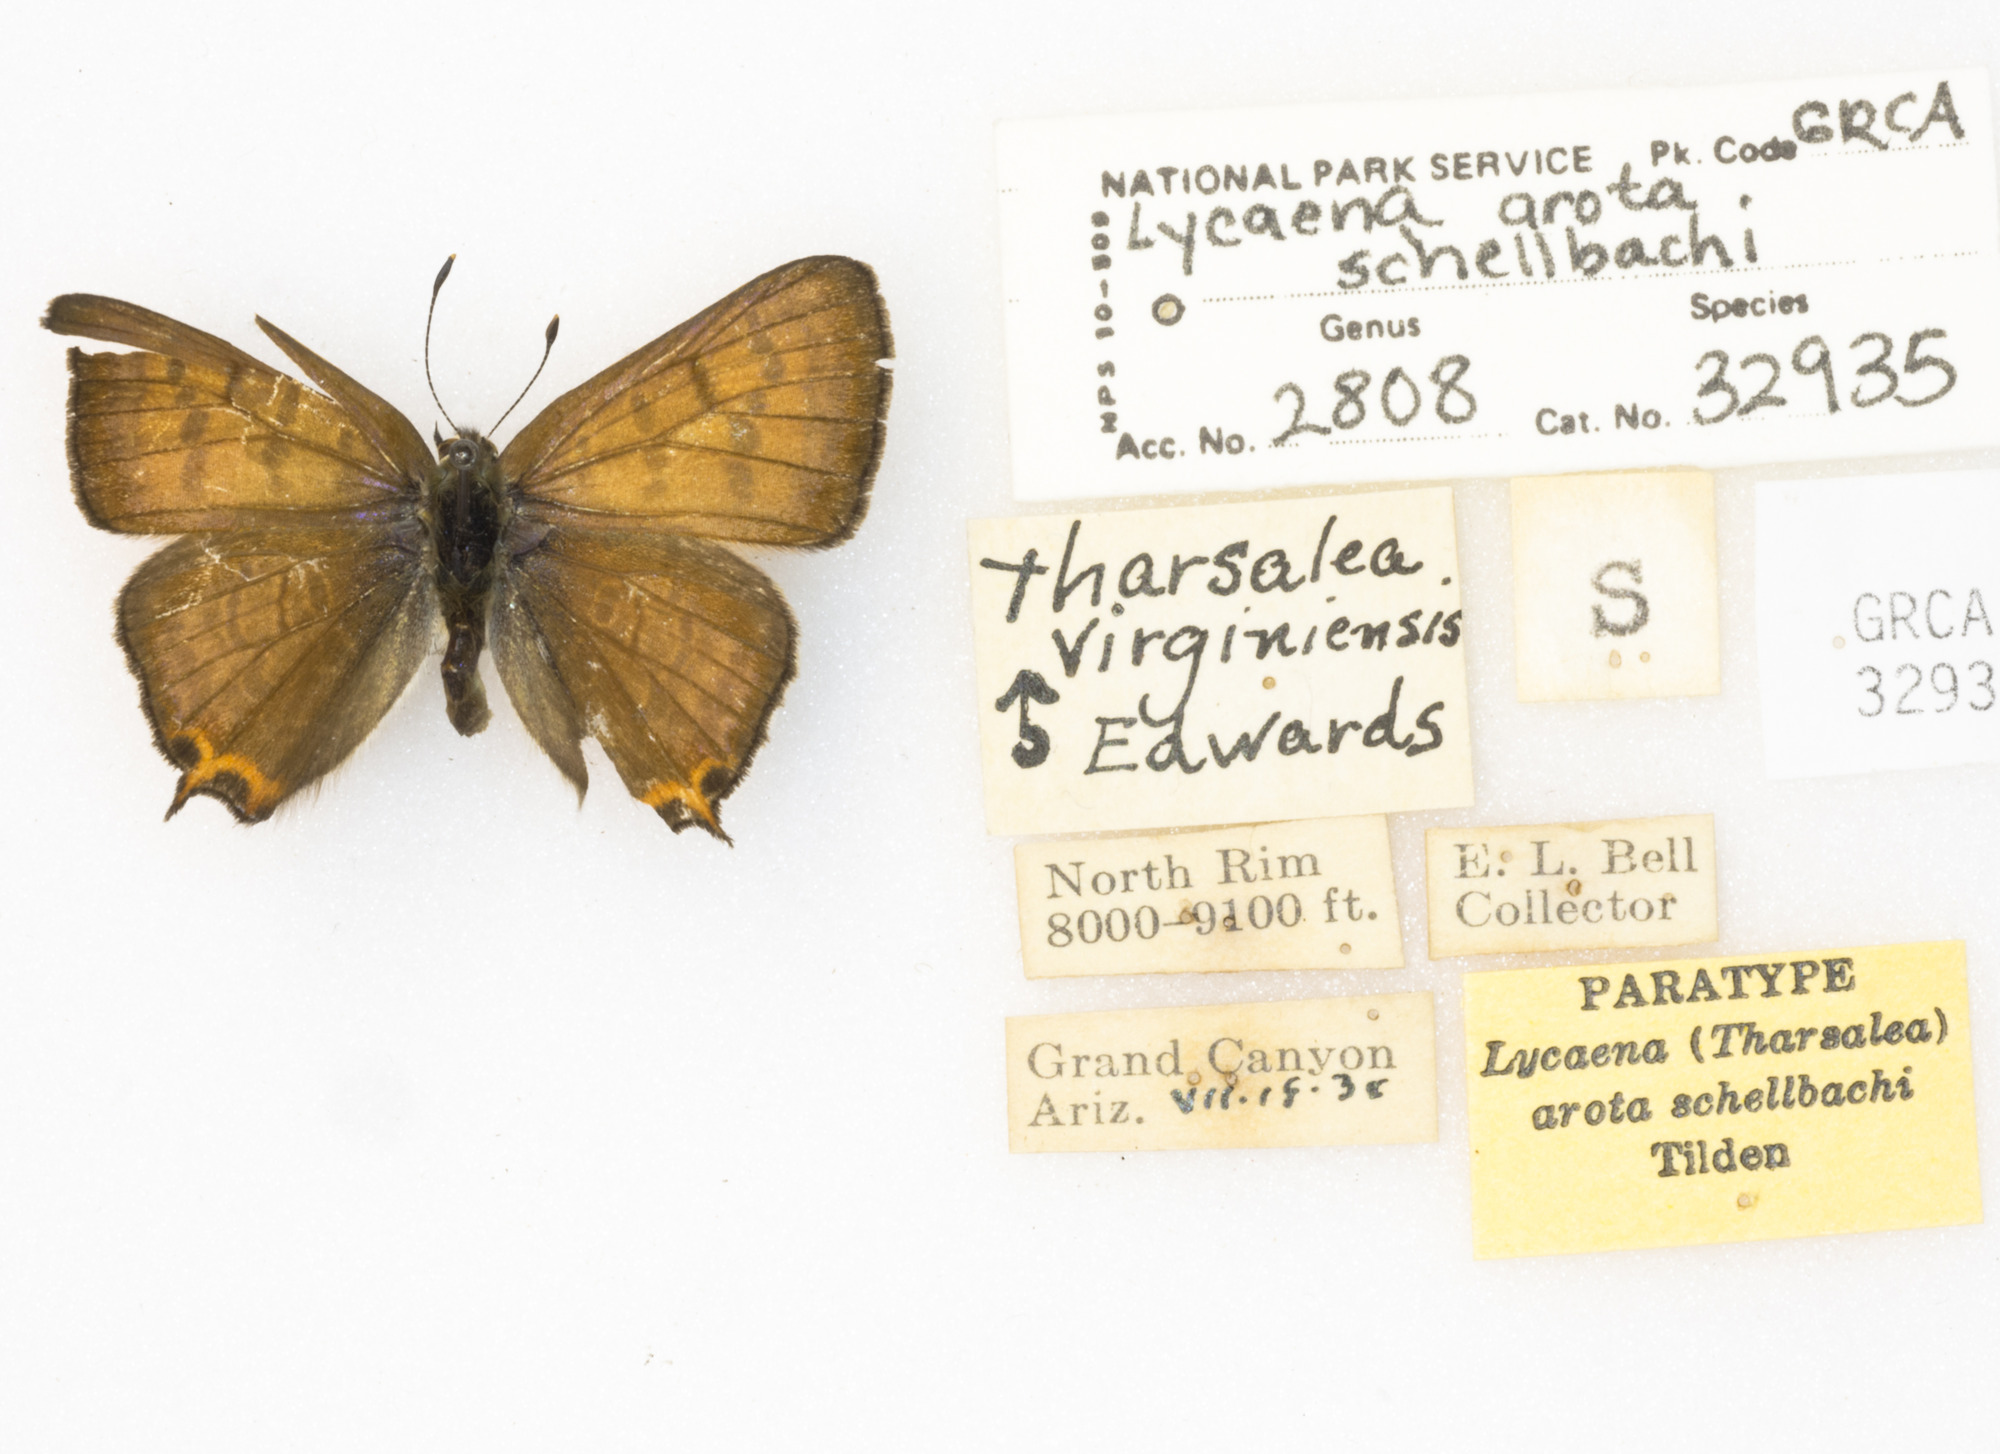 NATIONAL PARK SERVICE Pk. Code GRCA
Lycaena arota
schellbachi
Genus Species
Acc. No. 2808 Cat. No. 32935
NPS 10-509
Tharsalea
virginiensis
Edwards
S
GRCA
3293
North Rim
8000-9100 ft.
E. L. Bell
Collector
Grand Canyon
Ariz.
PARATYPE
Lycaena (Tharsalea)
arota schellbachi
Tilden